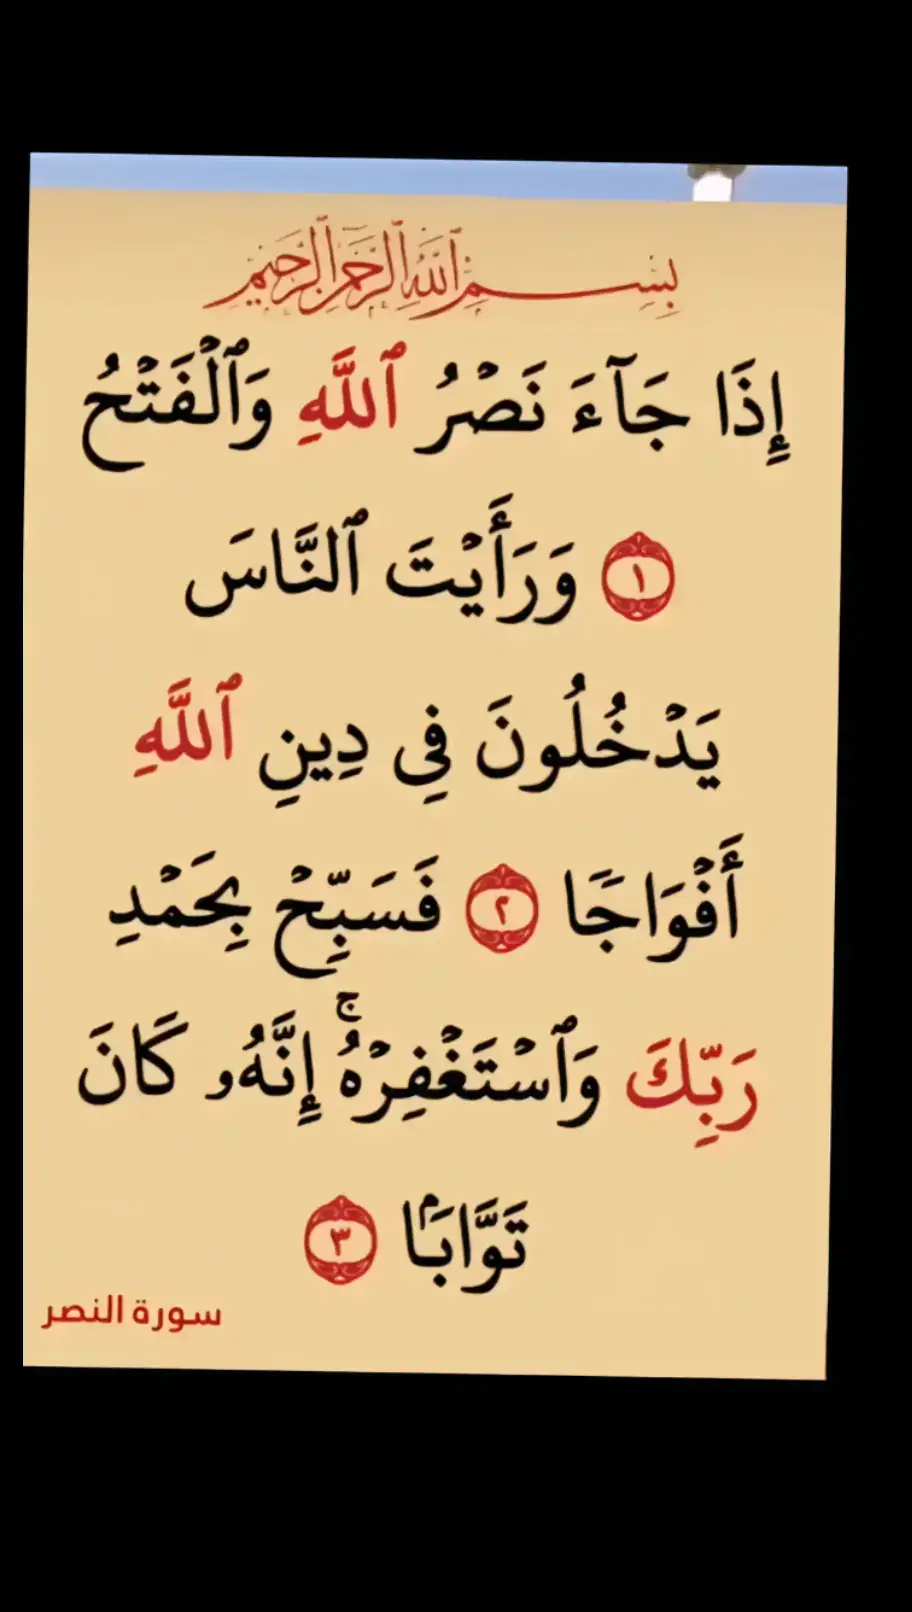 بِسْمِ ٱللَّهِ ٱلرَّحْمَٰنِ ٱلرَّحِيمِ
إِذَا جَآءَ نَصْرُ ٱللَّهِ وَٱلْفَتْحُ
١ وَرَأَيْتَ ٱلنَّاسَ
يَدْخُلُونَ فِى دِينِ ٱللَّهِ
أَفْوَاجًا ٢ فَسَبِّحْ بِحَمْدِ
رَبِّكَ وَٱسْتَغْفِرْهُ ۚ إِنَّهُۥ كَانَ
تَوَّابًۢا ٣
سورة النصر